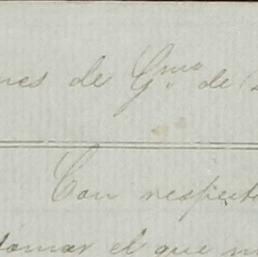 nes de G.mo de
Con respecto
tomar el que